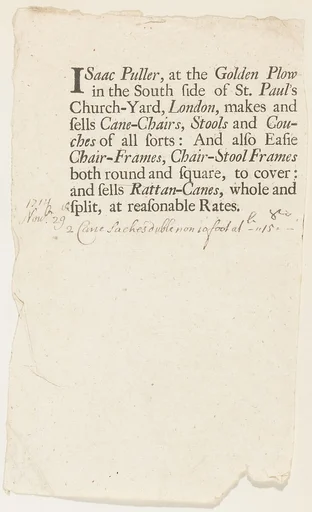 ISaac Puller, at the Golden Plow
in the South ſide of St. Paul's
Church-Yard, London, makes and
ſells Cane-Chairs, Stools and Cou-
ches of all ſorts: And alſo Eaſie
Chair-Frames, Chair-Stool Frames
both round and ſquare, to cover:
and ſells Rattan-Canes, whole and
ſplit, at reaſonable Rates.
Nov. 29
2 Cane Saches duble non 19 foot at 15